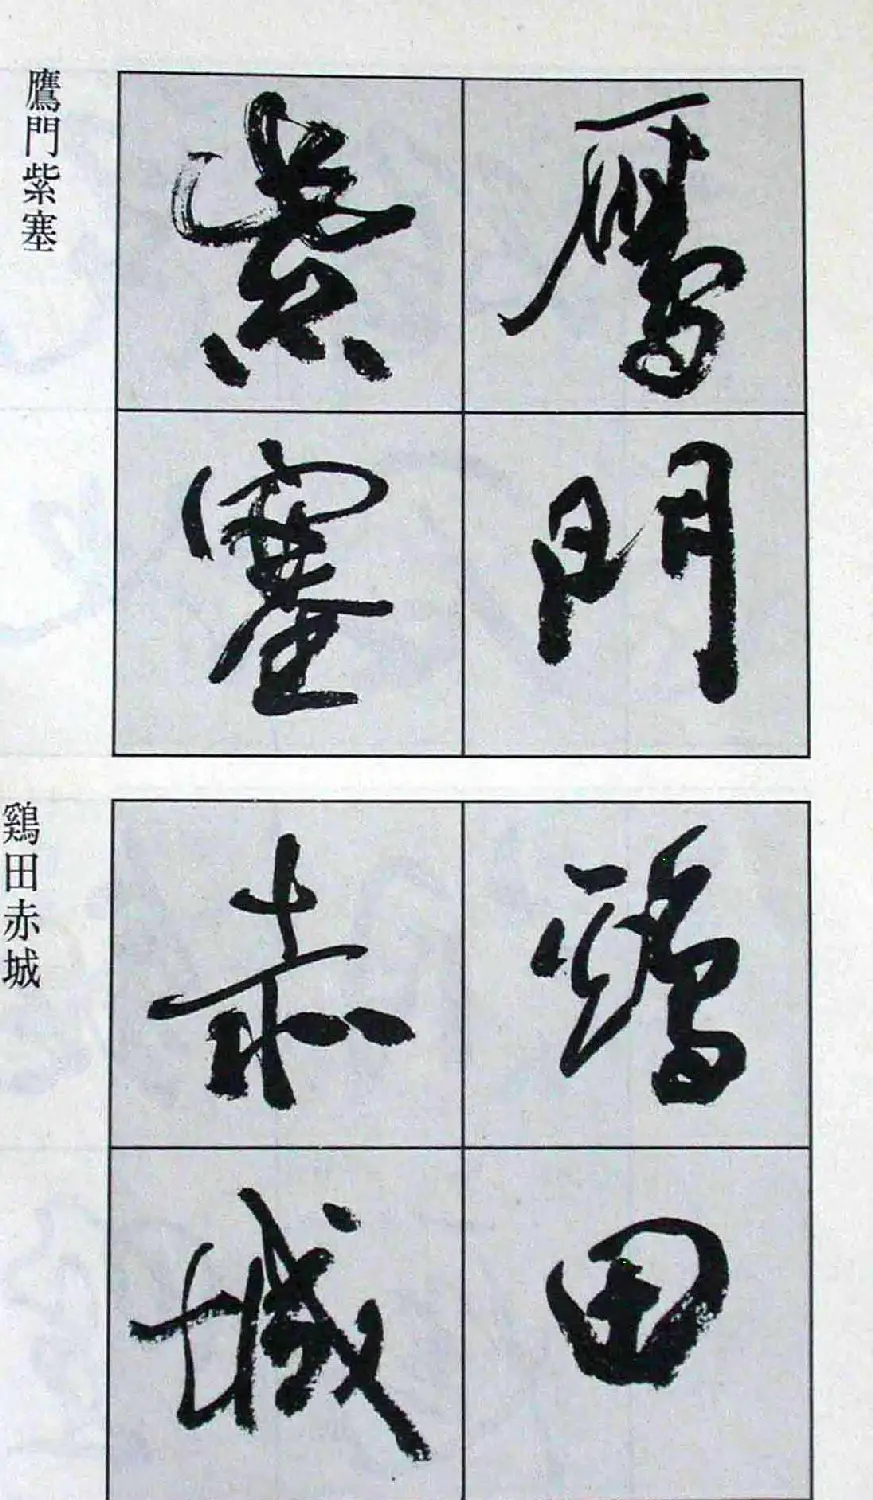 鴈門
紫塞
鷹門紫塞
鷄田
赤城
鷄田赤城